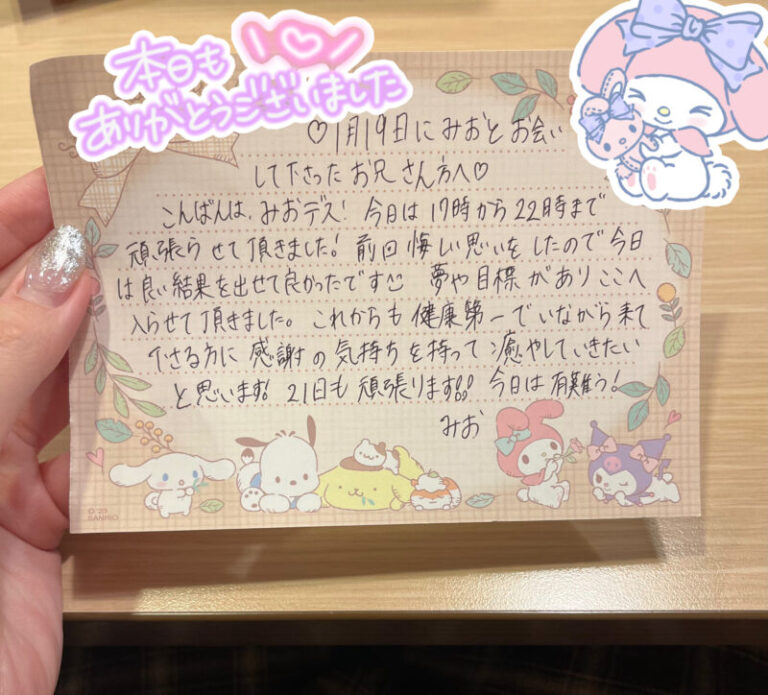 本日も
ありがとうございました
♡1月19日にみおとお会い
して下さったお兄さん方へ♡
こんばんは、みおデス! 今日は17時から22時まで
頑張らせて頂きました! 前回悔しい思いをしたので今日
は良い結果を出せて良かったです 夢や目標がありここへ
入らせて頂きました。これからも健康第一でいながら来て
下さる方に感謝の気持ちを持って癒やしていきたい
と思います! 21日も頑張ります!! 今日は有難う!
みお
© '23
SANRIO